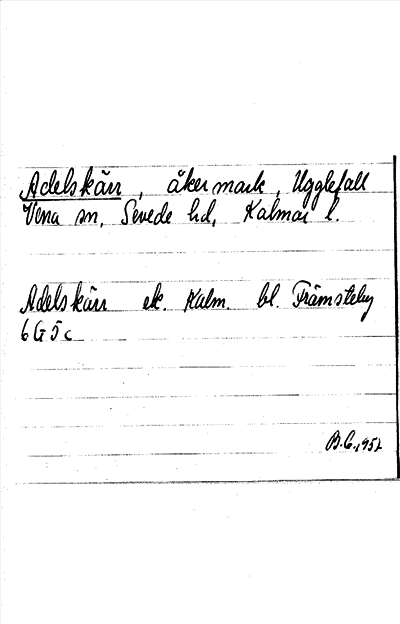 Adelskärr, åkermark, Ugglefall
Vena sn, Sevede hd, Kalmar l.
Adelskärr ek. Kalm. bl. Främsteby
6G5c
B.C. 1952